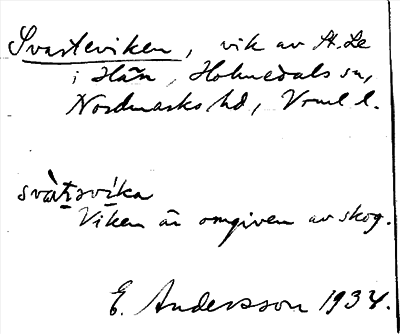 Svarteviken, vik av St. Le
i Hän, Holmedals sn,
Nordmarks hd, Vrml l.
svàʈəvíka
Viken är omgiven av skog.
E. Andersson 1934.